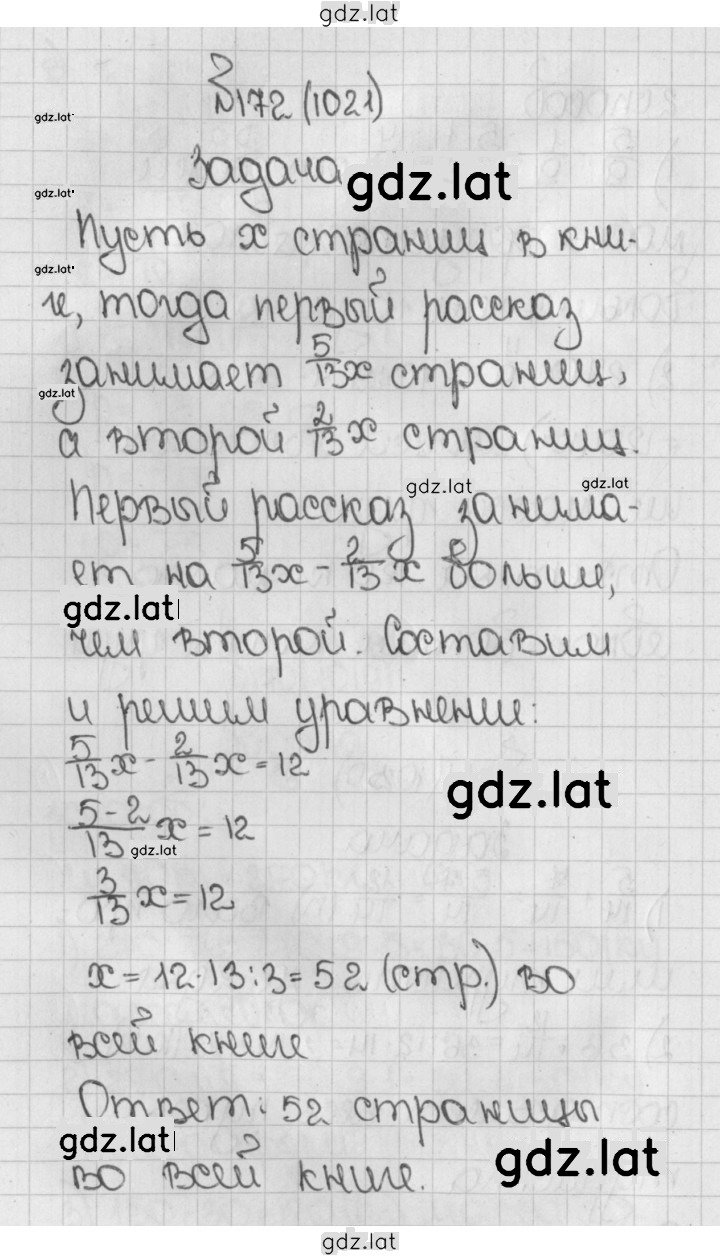 gdz.lat
№172 (1021)
gdz.lat
Задача gdz.lat
gdz.lat
Пусть x страниц в кни-
gdz.lat
ге, тогда первый рассказ
занимает 5/13 x страниц,
gdz.lat
а второй 2/13 x страниц.
gdz.lat gdz.lat
Первый рассказ занима-
ет на 5/13 x - 2/13 x больше,
gdz.lat
чем второй. Составим
и решим уравнение:
5/13 x - 2/13 x = 12
gdz.lat
(5-2)/13 x = 12
gdz.lat
3/13 x = 12
x = 12·13:3 = 52 (стр.) во
всей книге
Ответ: 52 страницы
gdz.lat
во всей книге.
gdz.lat
gdz.lat